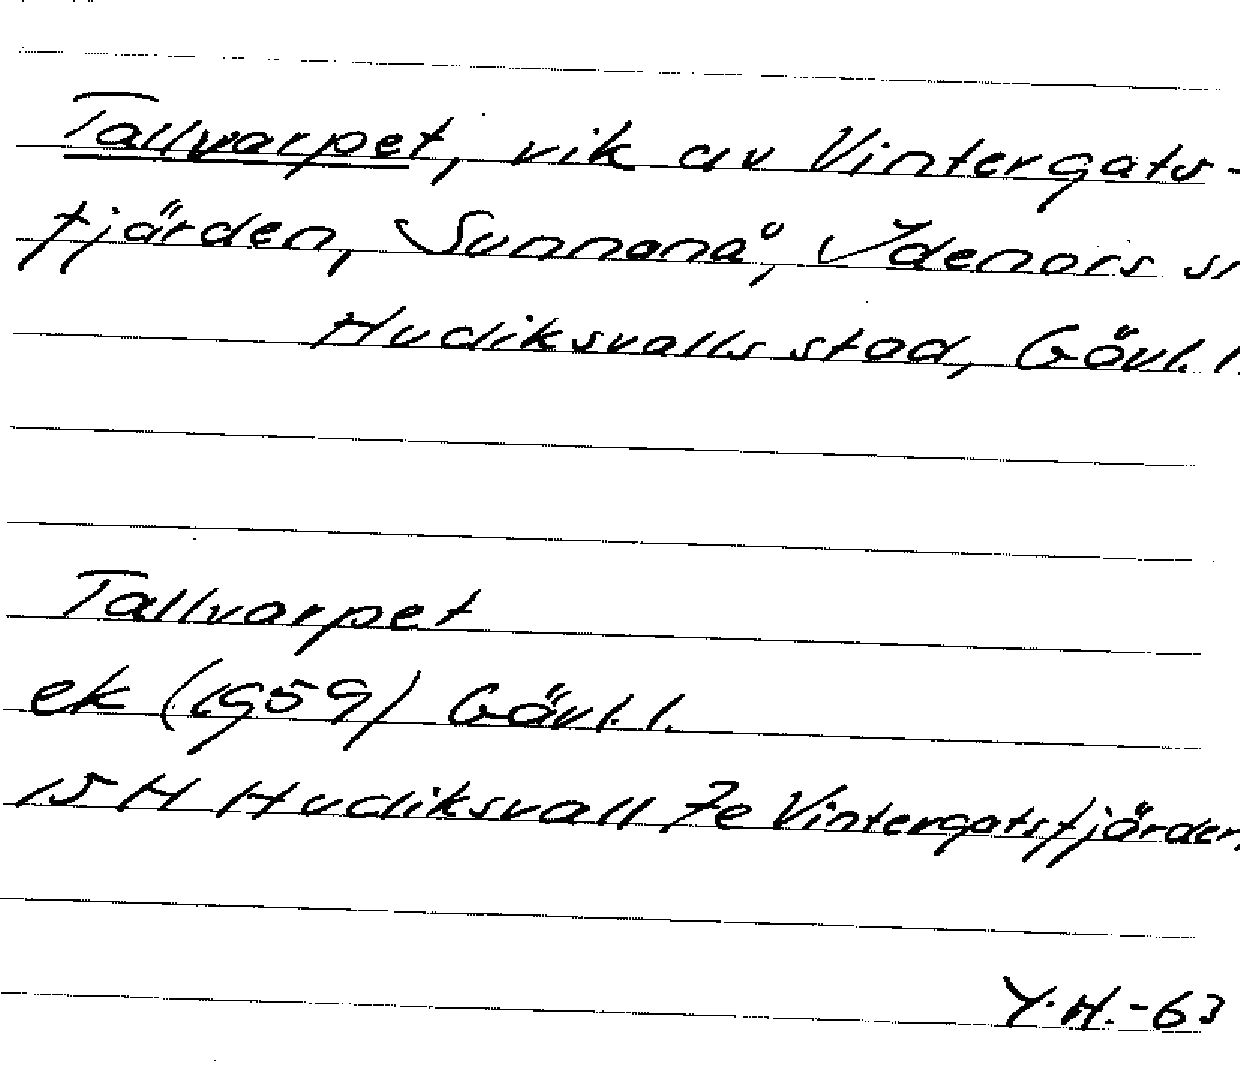 Tallvarpet, vik av Vintergats-
fjärden, Sunnanå, Idenors sn
Hudiksvalls stad, Gävl. l.
Tallvarpet
ek (1959) Gävl. l.
15 H Hudiksvall 7e Vintergatsfjärden
Y.H.-63